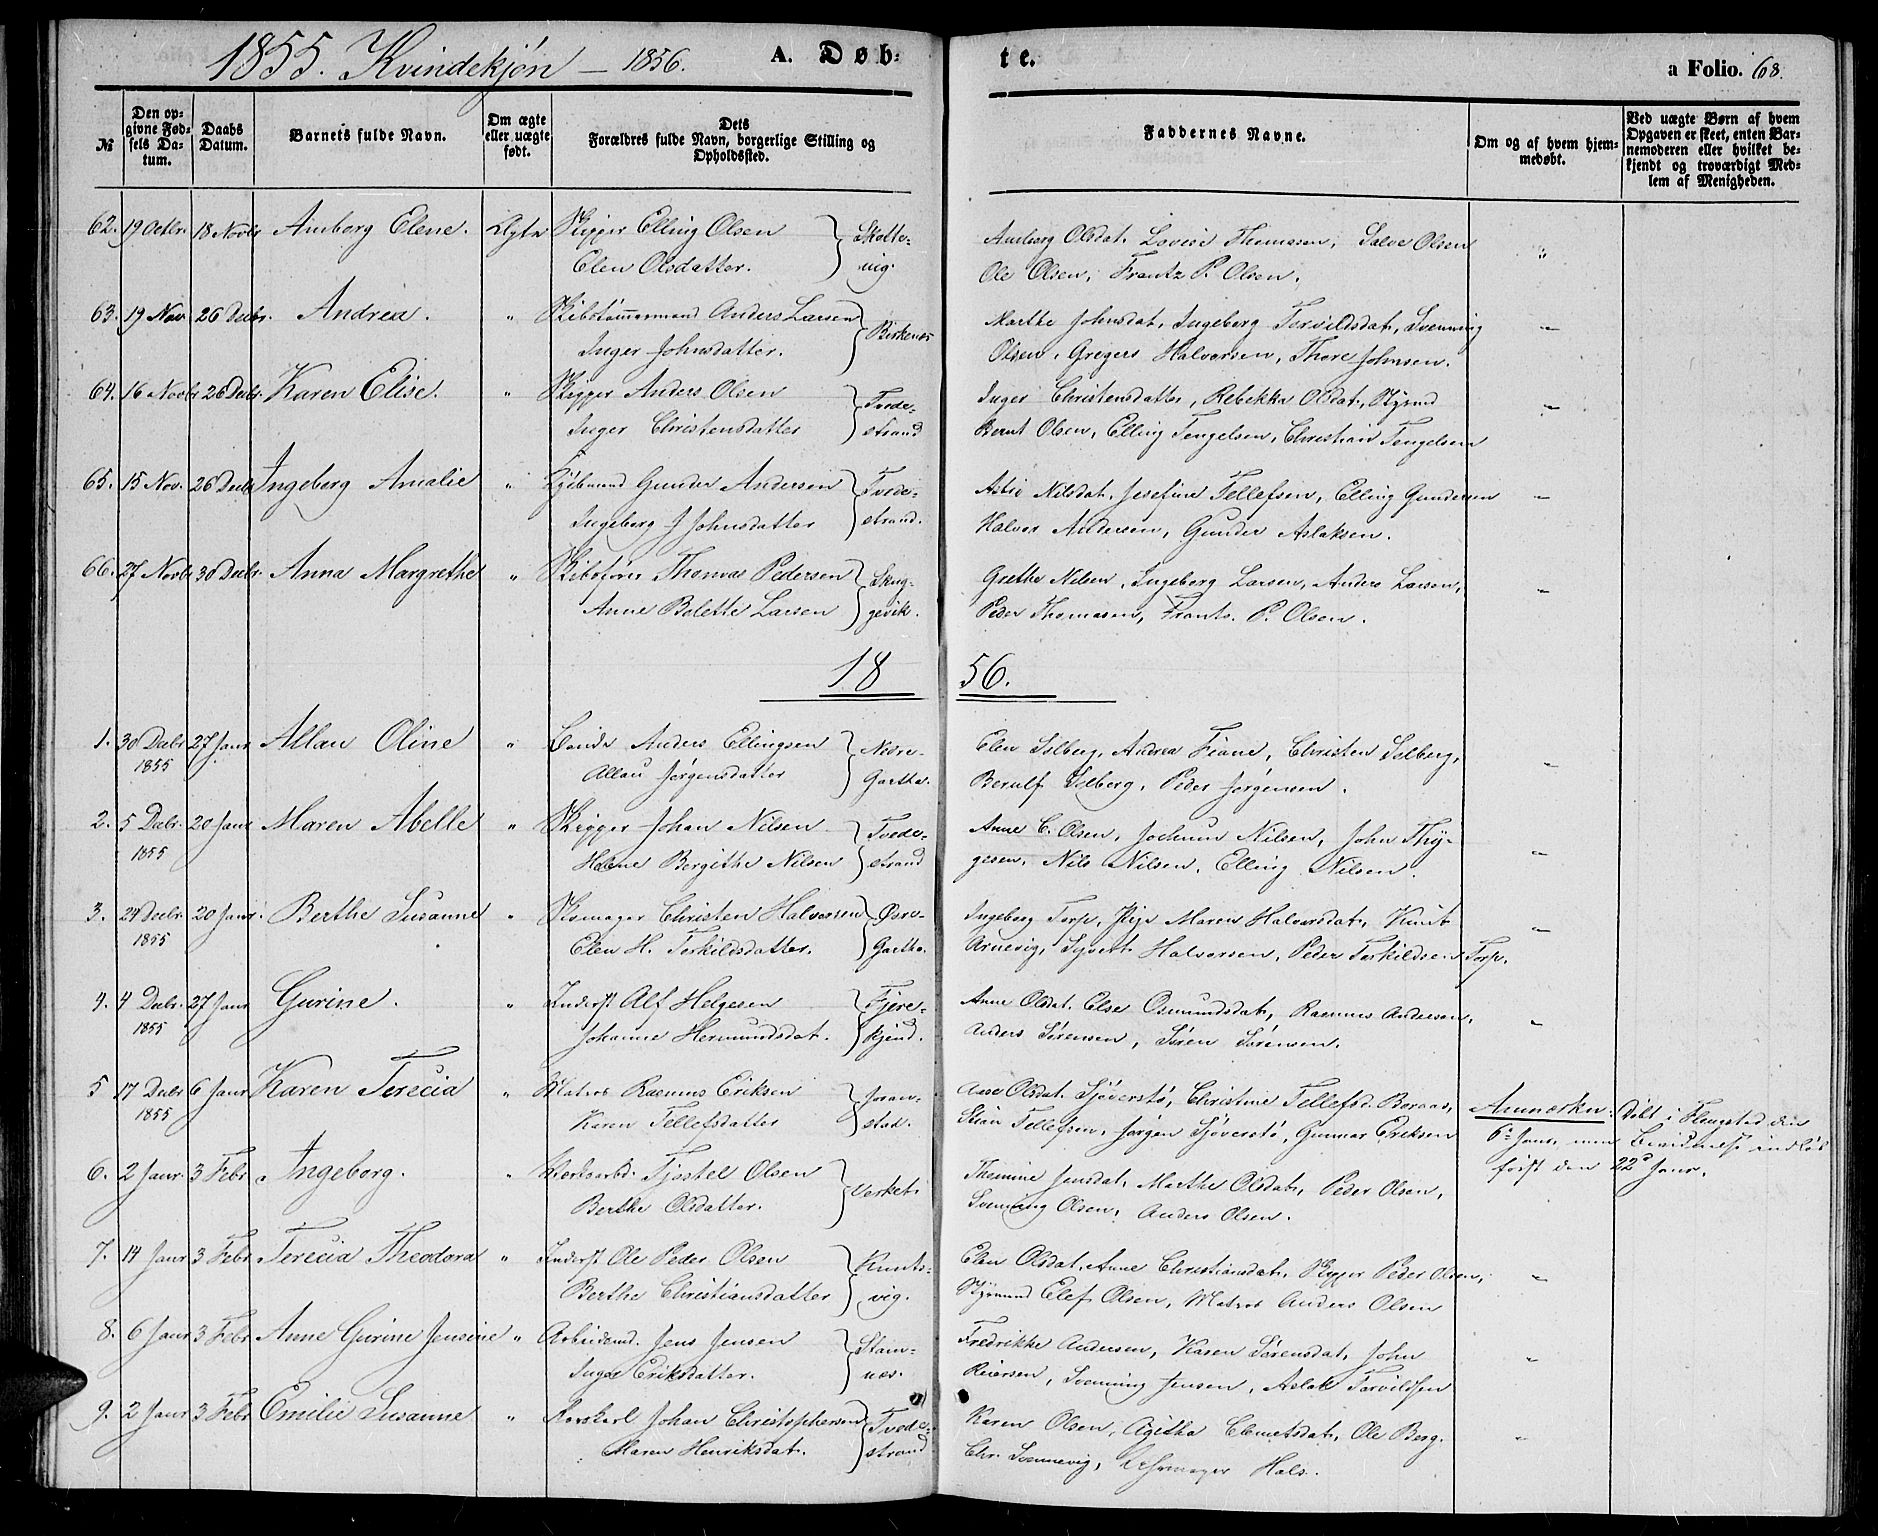 1855. Kvindekjøn – 1856. A. Døb- te. a Folio. 68.
№ Den opgivne Fødsels Datum. Daabs Datum. Barnets fulde Navn. Om ægte eller uægte født. Dets Forældres fulde Navn, borgerlige Stilling og Opholdssted. Faddernes Navne. Om og af hvem hjemmedøbt. Ved uægte Børn af hvem Opgaven er skeet, enten Barnemoderen eller hvilket bekjendt og troværdigt Medlem af Menigheden.
62. 19 Octbr. 18 Novbr Amborg Elene. Ægte Skipper Elling Olsen Skotte- Amborg Olsdat. Lovise Thomassen, Salve Olsen "
Elen Olsdatter. vig. Ole Olsen, Frantz P. Olsen.
63. 19 Nov. 26 Decbr. Andrea. " Skibstømmermand Anders Larsen Birkenes Marthe Johnsdat, Ingeborg Torvildsdat, Svenning "
Inger Johnsdatter. Olsen, Gregers Halvorsen, Thore Johnsen.
64. 16 Novbr 26 Decbr. Karen Elise. " Skipper Anders Olsen Tvede- Inger Christensdatter, Rebekka Olsdat, Styrmd "
Inger Christensdatter strand Bernt Olsen, Elling Tengelsen, Christian Tengelsen
65. 15 Nov. 26 Decbr Ingeborg Amalie " Kjøbmand Gunder Andersen Tvede- Nilsdat, Josefine Tellefsen, Elling Gundersen "
Ingeborg J Johnsdatter strand. Halvor Andersen, Gunder Aslaksen.
66. 27 Novbr 30 Decbr. Anna Margrethe " Skibsfører Thomas Pedersen Skug- Grethe Nilsen, Ingeborg Larsen, Anders Larsen, "
Anne Bolette Larsen gevik. Peder Thomasen, Frants P. Olsen.
18 56.
1. 30 Decbr 27 Janr Allau Oline " Bonde Anders Ellingsen Nedre- Elen Selberg, Andrea Fiane, Christen Selberg, "
1855 Allau Jørgensdatter Gartha. Berulf Selberg, Peder Jørgensen.
2. 5 Decbr. 20 Janr Maren Abelle " Skipper Johan Nilsen Tvede- Anne C. Olsen, Jochum Nilsen, John Thy- "
1855 Helene Bergithe Nilsen strand gesen, Nils Nilsen, Elling Nilsen.
3. 24 Decbr. 20 Janr. Berthe Susanne " Skomager Christen Halvorsen Øvre- Ingeborg Torp, Pige Maren Halvorsdat, Knut "
1855 Elen H. Terkildsdatter. Gartha. Arnevig, Syvert Halvorsen, Peder Terkildsen Torp.
4. 4 Decbr. 27 Janr Gurine. " Inderst Alf Helgesen Fjere- Anne Olsdat. Else Osmundsdat, Rasmus Andersen, "
1855 Johanne Hermundsdat. kjend. Anders Sørensen, Søren Sørensen.
5 17 Decbr 6 Janr Karen Terecia " Matros Rasmus Eriksen Joran- Aase Olsdat. Sjøverstø, Christine Tellefsd. Boraas, Anmerkn: Døbt i Flougstad den
1855 Karen Tellefsdatter stad. Stian Tellefsen, Jørgen Sjøverstø, Gunnar Eriksen 6te Janr. men Bevidnelse indløb
6. 2 Janr. 3 Febr. Ingeborg. " Verksarbd. Tjostel Olsen Verket. Thomine Jensdat, Marthe Olsdat, Peder Olsen, først den 22de Janr.
Berthe Olsdatter. Svenning Olsen, Anders Olsen.
7. 14 Janr 3 Febr Terecia Theodora " Inderst Ole Peder Olsen Knuts- Elen Olsdat, Anne Christiansdat, Skipper Peder Olsen, "
Berthe Christiansdatter vig. Styrmand Elef Olsen, Matros Anders Olsen
8. 6 Janr 3 Febr Anne Gurine Jensine " Arbeidsmd. Jens Jensen Stam- Fredrikke Andersen, Karen Sørensdat, John "
Inger Eriksdatter. næs. Reiersen, Svenning Jensen, Aslak Torvildsen
9. 2 Janr 3 Febr Emilie Susanne " Johan Christophersen Tvede- Karen Olsen, Agithe Clemetsdat, Ole Berg. "
Maren Henriksdat. strand Chr. Svennevig, Hals.